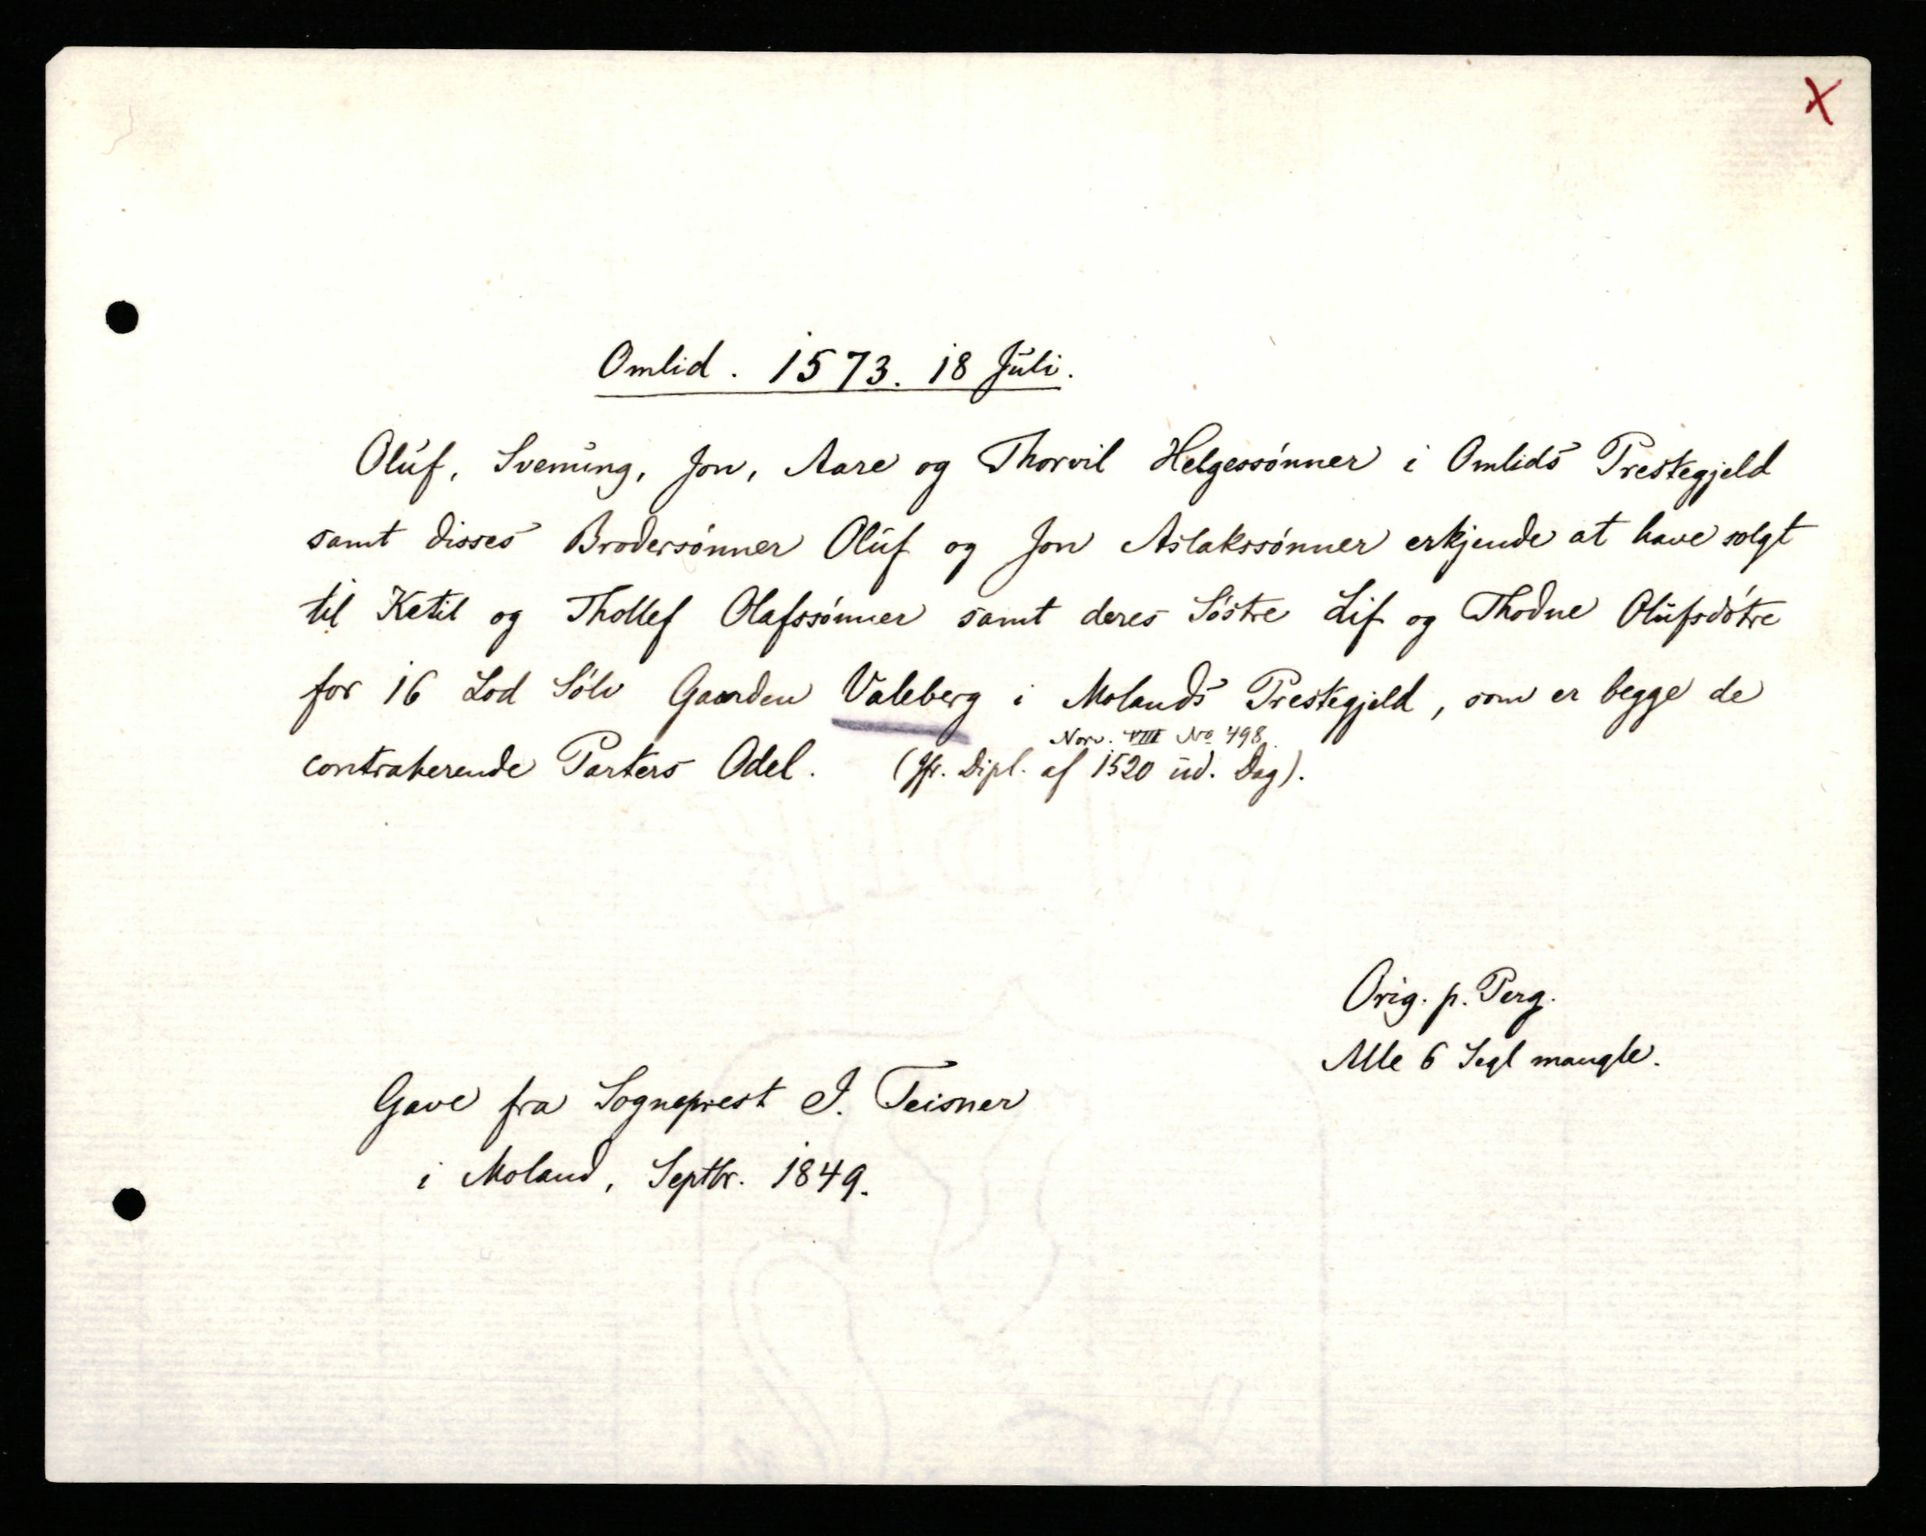 X
Omlid. 1573. 18 Juli.
Oluf, Svenung, Jon, Aare og Thorvil Helgessønner i Omlids Prestegjeld
samt disses Brodersønner Oluf og Jon Aslakssønner erkjende at have solgt
til Ketil og Thollef Olafssønner samt deres Søstre Lif og Thodne Olufsdøtre
for 16 Lod Sølv Gaarden Valeberg i Molands Prestegjeld, som er begge de
Norv. VIII No 498.
contraherende Parters Odel. (Jfr. Dipl. af 1520 ud. Dag).
Orig. p. Perg.
Alle 6 Segl mangle.
Gave fra Sogneprest J. Teisner
i Moland, Septbr. 1849.